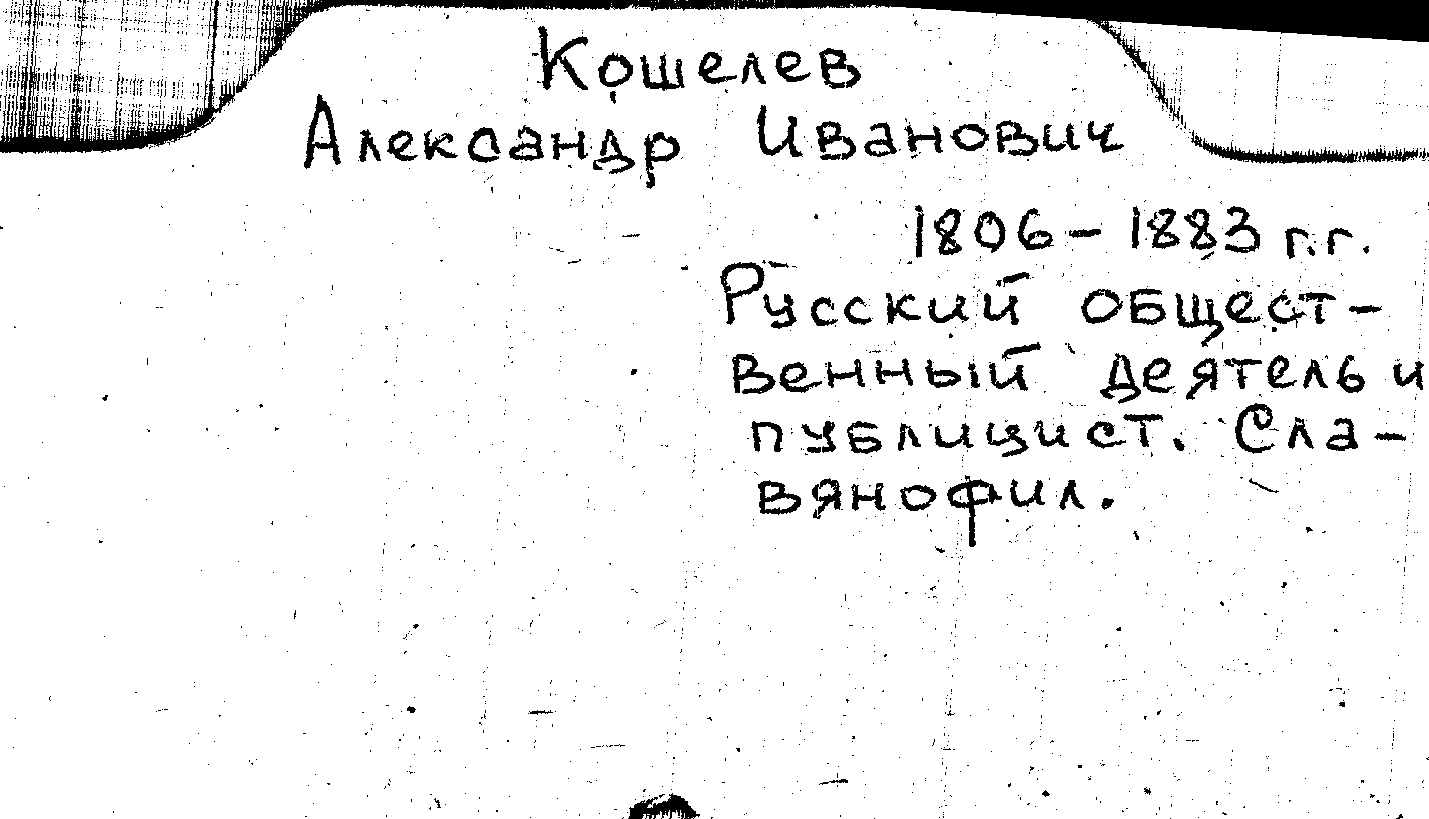 Кошелев
Александр Иванович
1806-1883 г.г.
Русский общест-
венный деятель и
публицист. Сла-
вянофил.